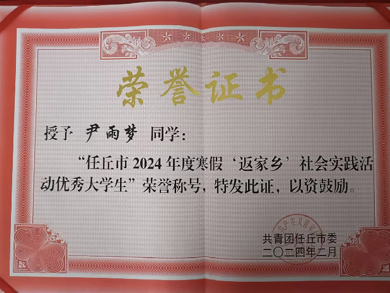 荣誉证书
授予 尹雨梦 同学：
“任丘市2024年度寒假‘返家乡’社会实践活
动优秀大学生”荣誉称号，特发此证，以资鼓励。
共青团任丘市委
二〇二四年二月